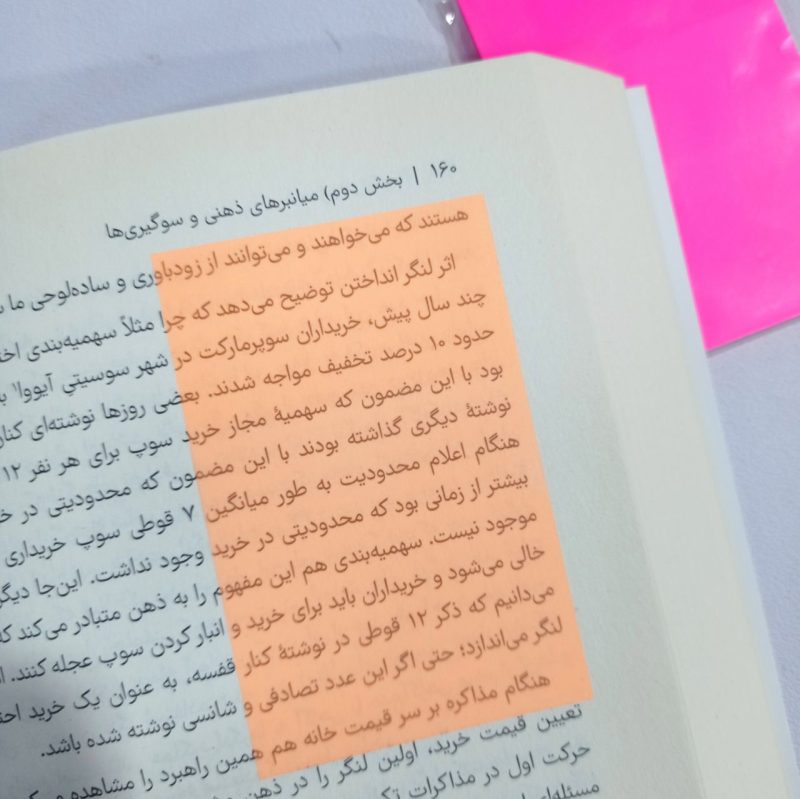 ۱۶۰ | بخش دوم) میانبرهای ذهنی و سوگیری‌ها
هستند که می‌خواهند و می‌توانند از زودباوری و ساده‌لوحی ما
اثر لنگر انداختن توضیح می‌دهد که چرا مثلاً سهمیه‌بندی
چند سال پیش، خریداران سوپرمارکت در شهر سوسیتیِ آیووا۱
حدود ۱۰ درصد تخفیف مواجه شدند. بعضی روزها نوشته‌ای کنار
بود با این مضمون که سهمیهٔ مجاز خرید سوپ برای هر نفر ۱۲
نوشتهٔ دیگری گذاشته بودند با این مضمون که محدودیتی در
هنگام اعلام محدودیت به طور میانگین ۷ قوطی سوپ خریداری
بیشتر از زمانی بود که محدودیتی در خرید وجود نداشت. این‌جا
موجود نیست. سهمیه‌بندی هم این مفهوم را به ذهن متبادر می‌کند
خالی می‌شود و خریداران باید برای خرید و انبار کردن سوپ عجله کنند.
می‌دانیم که ذکر ۱۲ قوطی در نوشتهٔ کنار قفسه، به عنوان یک خرید
لنگر می‌اندازد؛ حتی اگر این عدد تصادفی و شانسی نوشته شده باشد.
هنگام مذاکره بر سر قیمت خانه هم همین راهبرد را مشاهده
تعیین قیمت خرید، اولین لنگر را در ذهن
حرکت اول در مذاکرات